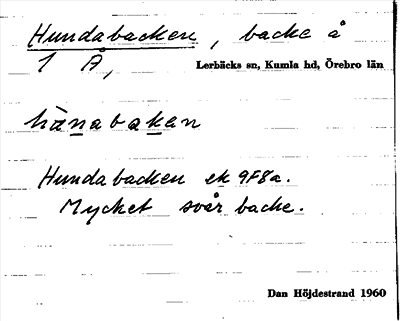 Hundabacken, backe å
1 Å,
Lerbäcks sn, Kumla hd, Örebro län
hànabakan
Hundabacken ek 9F8a.
Mycket svår backe.
Dan Höjdestrand 1960